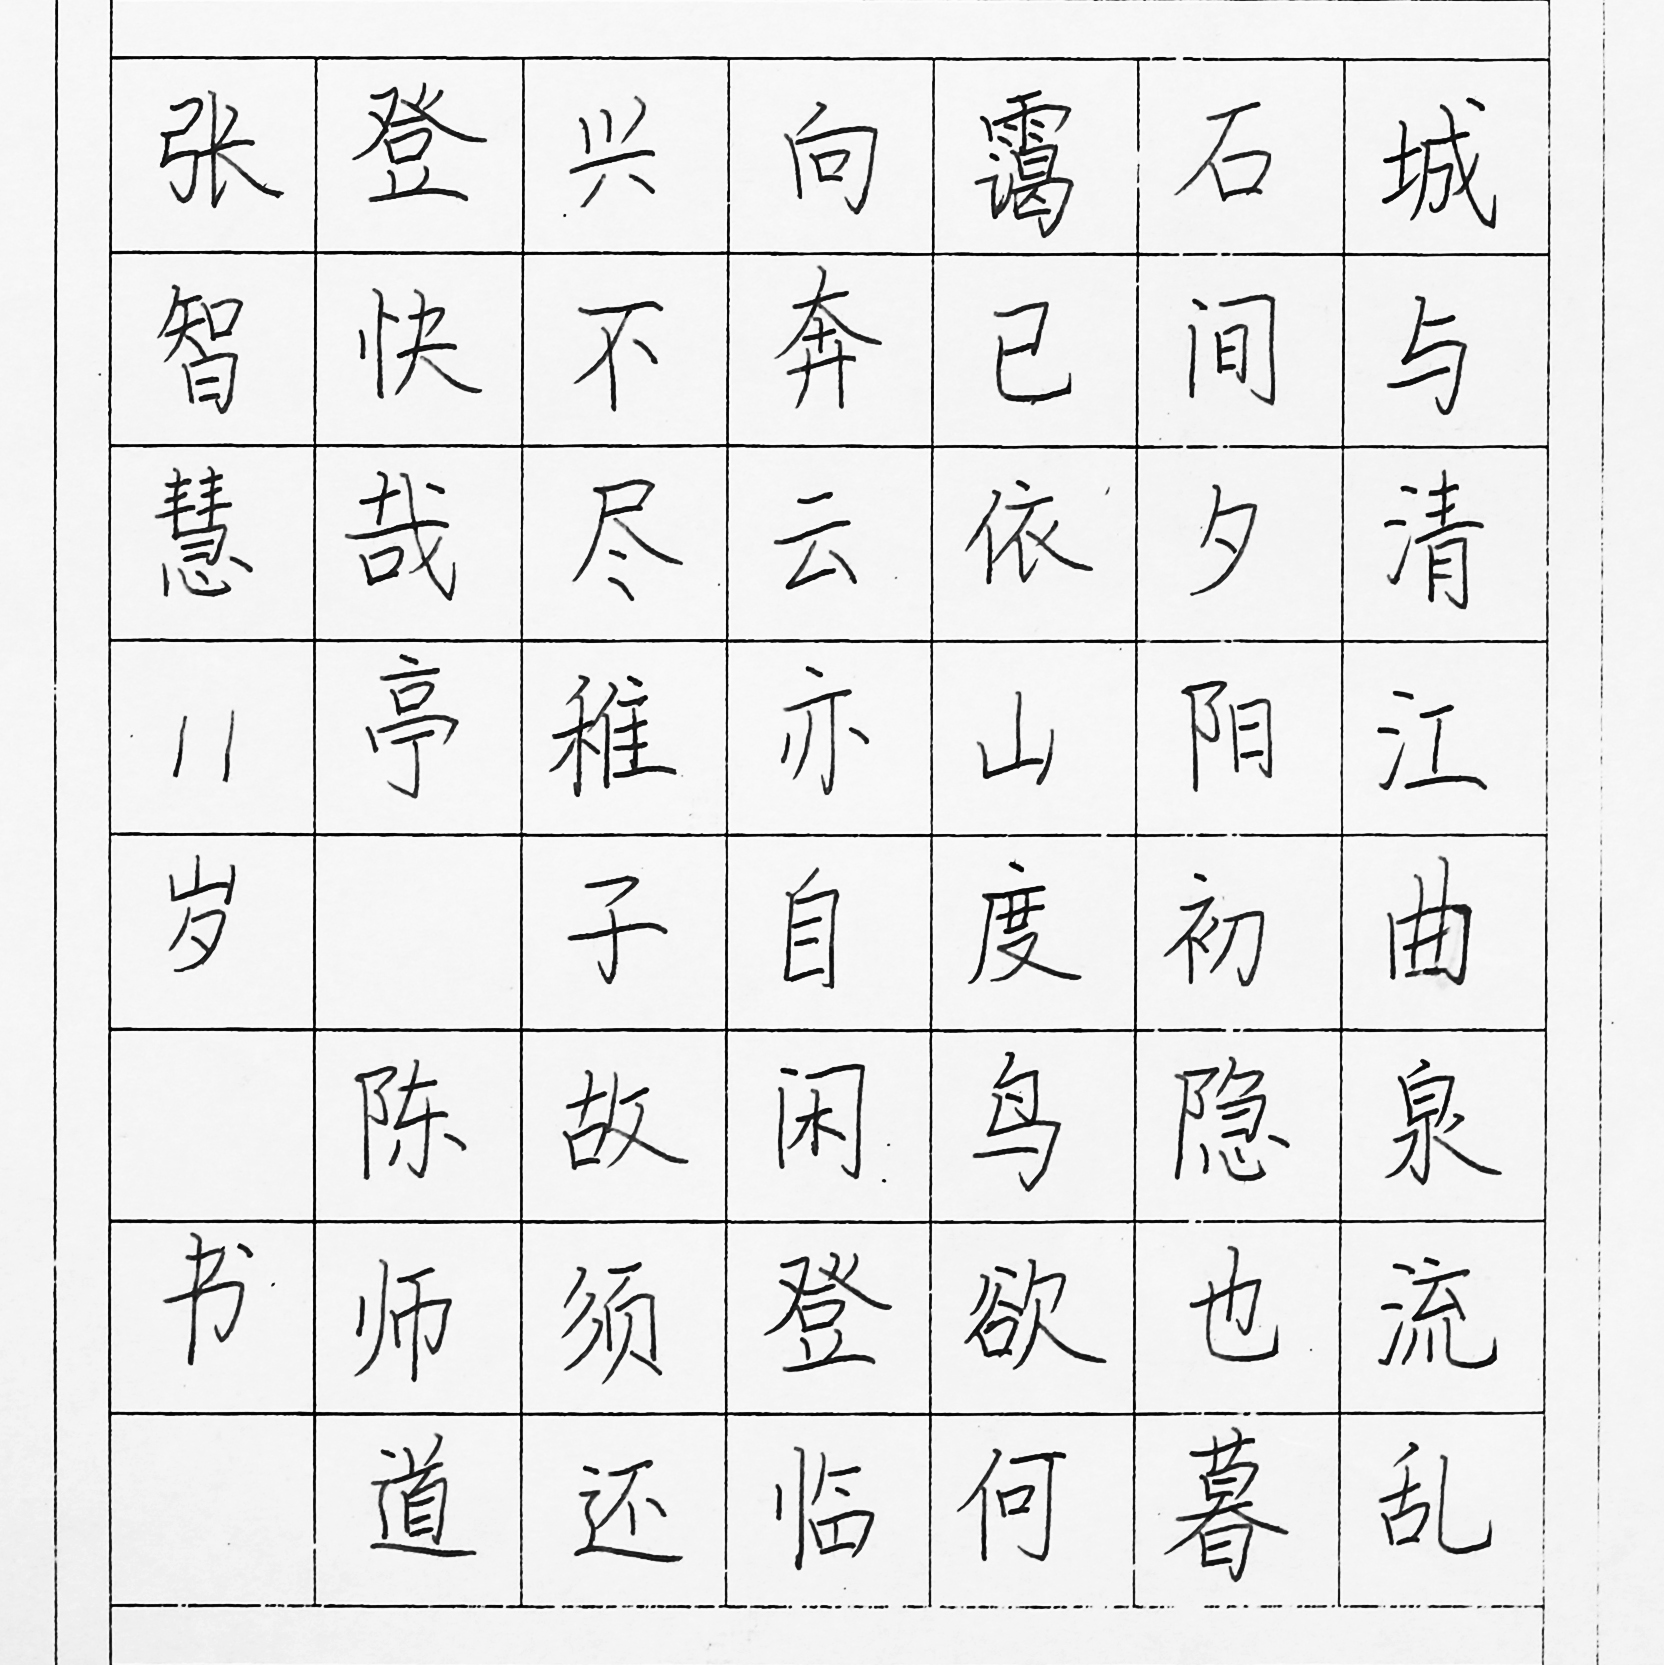 城与清江曲泉流乱
石间夕阳初隐也暮
霭已依山度鸟欲何
向奔云亦自闲登临
兴不尽稚子故须还
登快哉亭 陈师道
张智慧11岁 书